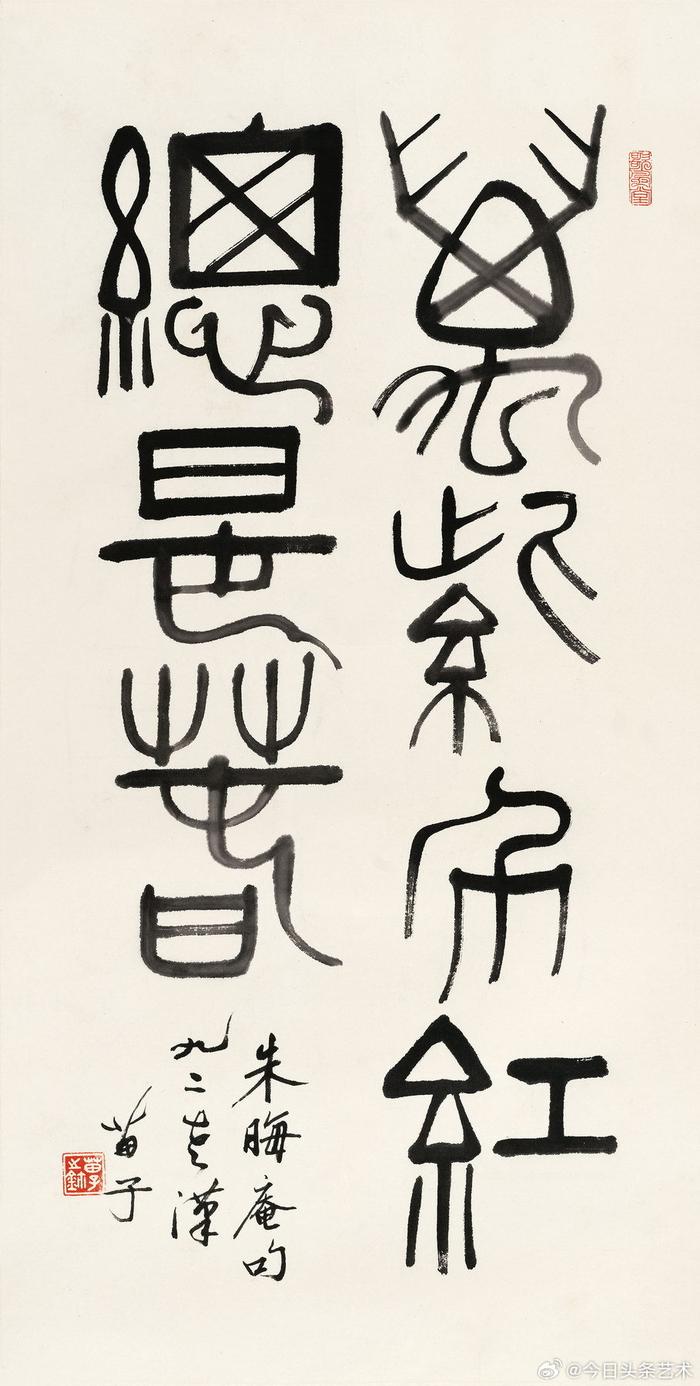 萬紫千紅
總是春
朱晦庵句
九二老漢
苗子
苗子之鉨
@今日头条艺术